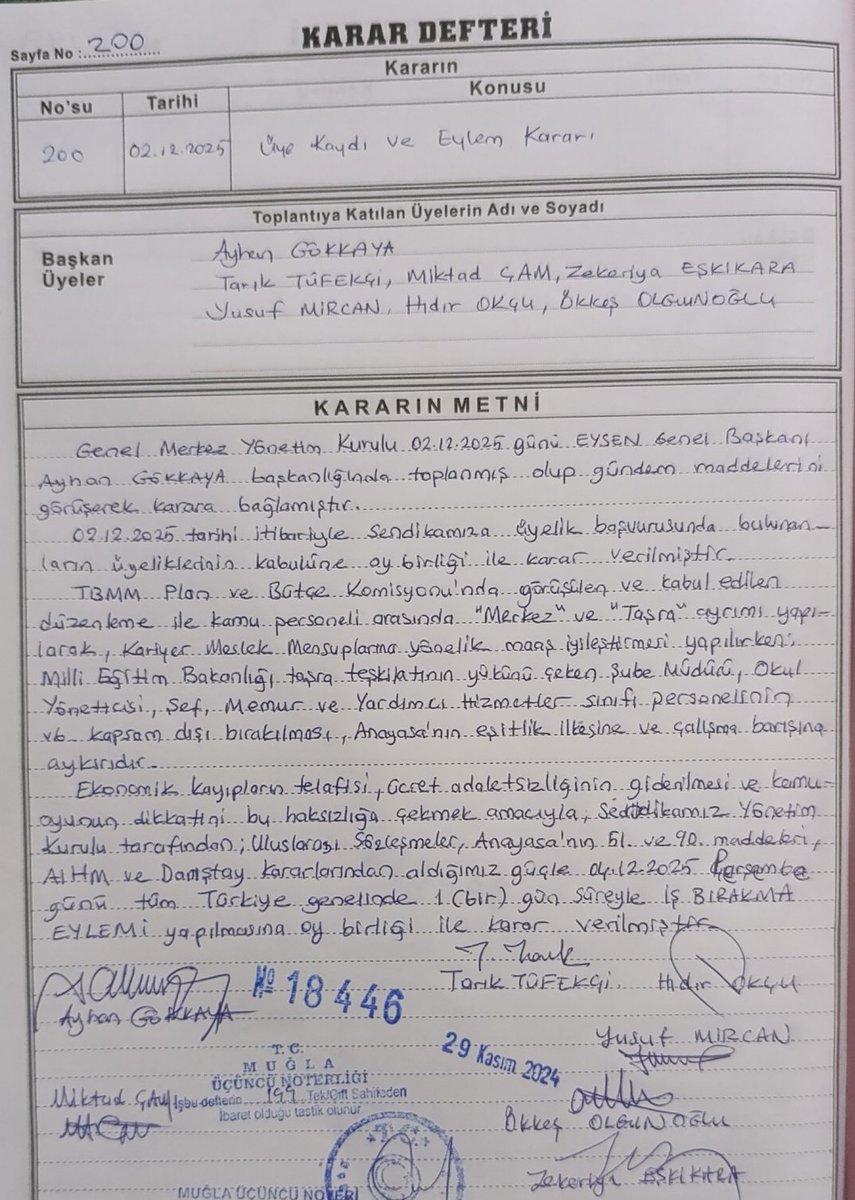 KARAR DEFTERİ
Sayfa No : 200
Kararın
No'su Tarihi Konusu
200 02.12.2025 Üye Kaydı ve Eylem Kararı
Toplantıya Katılan Üyelerin Adı ve Soyadı
Başkan Ayhan GÖKKAYA
Üyeler Tarık TÜFEKÇİ, Miktad ÇAM, Zekeriya EŞKIKARA
Yusuf MİRCAN, Hıdır OKÇU, Ökkeş OLGUNOĞLU
KARARIN METNİ
Genel Merkez Yönetim Kurulu 02.12.2025 günü EYSEN Genel Başkanı
Ayhan GÖKKAYA başkanlığında toplanmış olup gündem maddelerini
görüşerek karara bağlamıştır.
02.12.2025 tarihi itibariyle Sendikamıza üyelik başvurusunda bulunan-
ların üyeliklerinin kabulüne oy birliği ile karar verilmiştir.
TBMM Plan ve Bütçe Komisyonu'nda görüşülen ve kabul edilen
düzenleme ile kamu personeli arasında "Merkez" ve "Taşra" ayrımı yapı-
larak, Kariyer Meslek Mensuplarına yönelik maaş iyileştirmesi yapılırken;
Milli Eğitim Bakanlığı taşra teşkilatının yükünü çeken Şube Müdürü, Okul
Yöneticisi, Şef, Memur ve Yardımcı Hizmetler sınıfı personelinin
vb kapsam dışı bırakılması, Anayasa'nın eşitlik ilkesine ve çalışma barışına
aykırıdır.
Ekonomik kayıpların telafisi, ücret adaletsizliğinin giderilmesi ve kamu-
oyunun dikkatini bu haksızlığa çekmek amacıyla; Sendikamız Yönetim
Kurulu tarafından; Uluslarası Sözleşmeler, Anayasa'nın 51. ve 90. maddeleri,
AİHM ve Danıştay kararlarından aldığımız güçle 04.12.2025 Perşembe
günü tüm Türkiye genelinde 1 (bir) gün süreyle İŞ BIRAKMA
EYLEMİ yapılmasına oy birliği ile karar verilmiştir.
Ayhan GÖKKAYA
№ 18446
Tarık TÜFEKÇİ Hıdır OKÇU
29 Kasım 2024
Yusuf MİRCAN
T.C.
MUĞLA
ÜÇÜNCÜ NOTERLİĞİ
Miktad ÇAM
İşbu defterin 199 Tek/Çift Sahifeden
İbaret olduğu tastik olunur.
Ökkeş OLGUNOĞLU
Zekeriya EŞKIKARA
MUĞLA ÜÇÜNCÜ NOTERİ